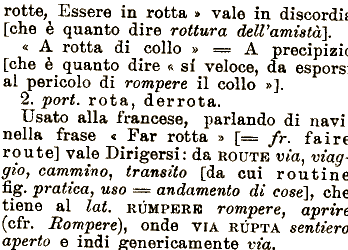 rotte, Essere in rotta » vale in discordia
[che è quanto dire rottura dell'amistà].
« A rotta di collo » = A precipizio
[che è quanto dire « sí veloce, da esporsi
al pericolo di rompere il collo »].
2. port. rota, derrota.
Usato alla francese, parlando di navi
nella frase « Far rotta » [= fr. faire
route] vale Dirigersi: da ROUTE via, viag-
gio, cammino, transito [da cui routine
fig. pratica, uso = andamento di cose], che
tiene al lat. RÚMPERE rompere, aprire
(cfr. Rompere), onde VIA RÚPTA sentiero
aperto e indi genericamente via.